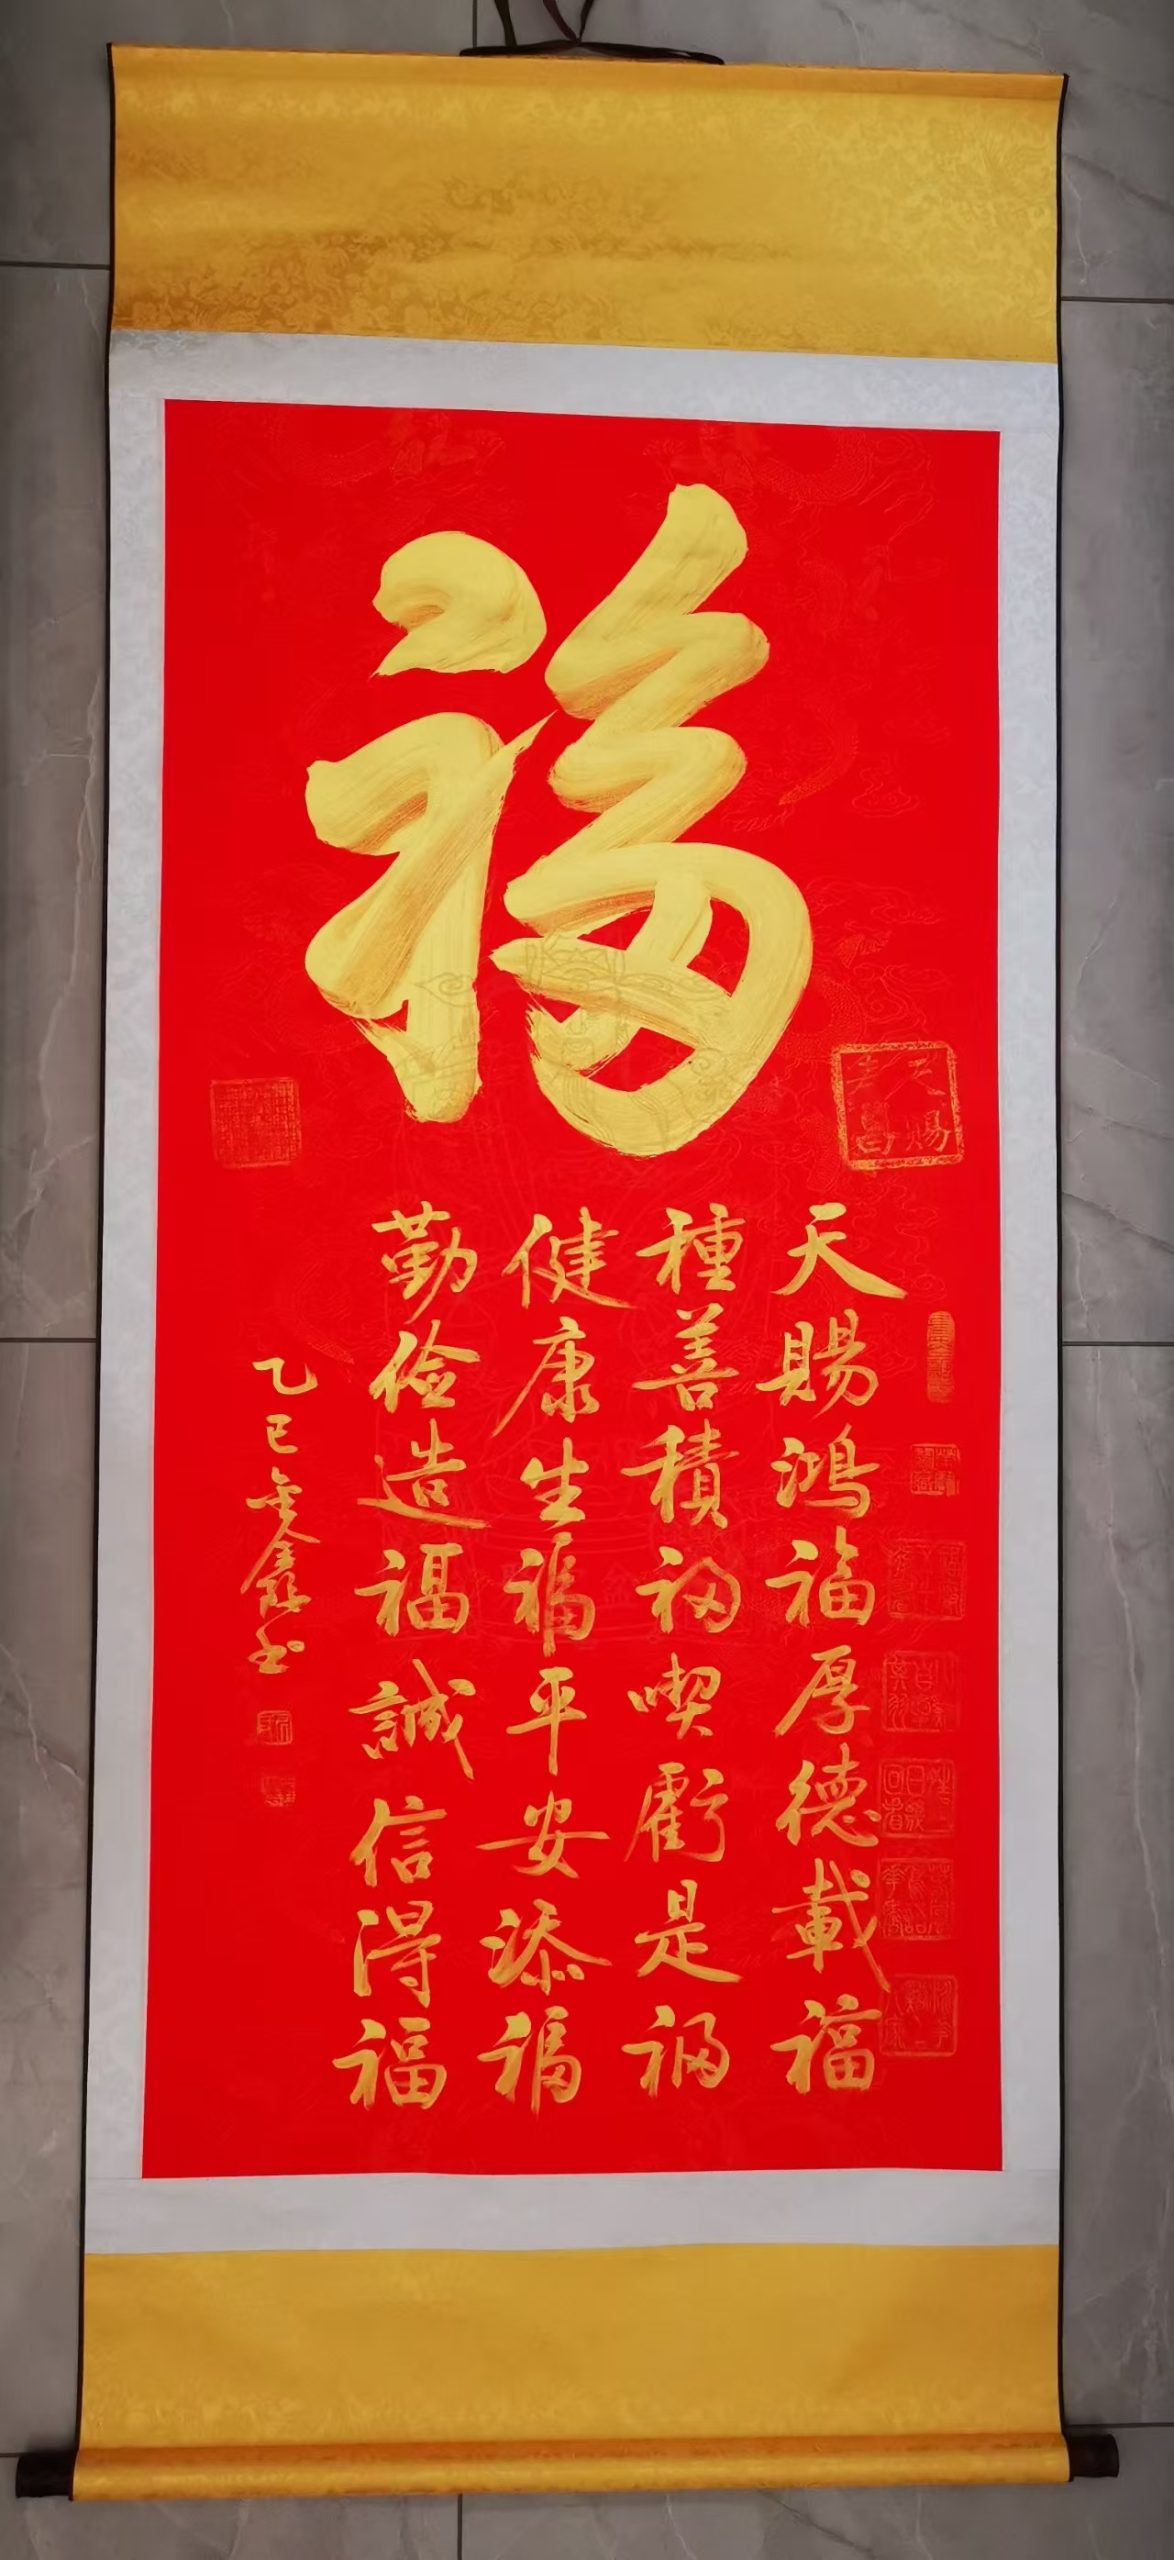 福
天賜鴻福厚德載福
種善積福喫虧是福
健康生福平安添福
勤儉造福誠信得福
乙巳金鑫书
天賜